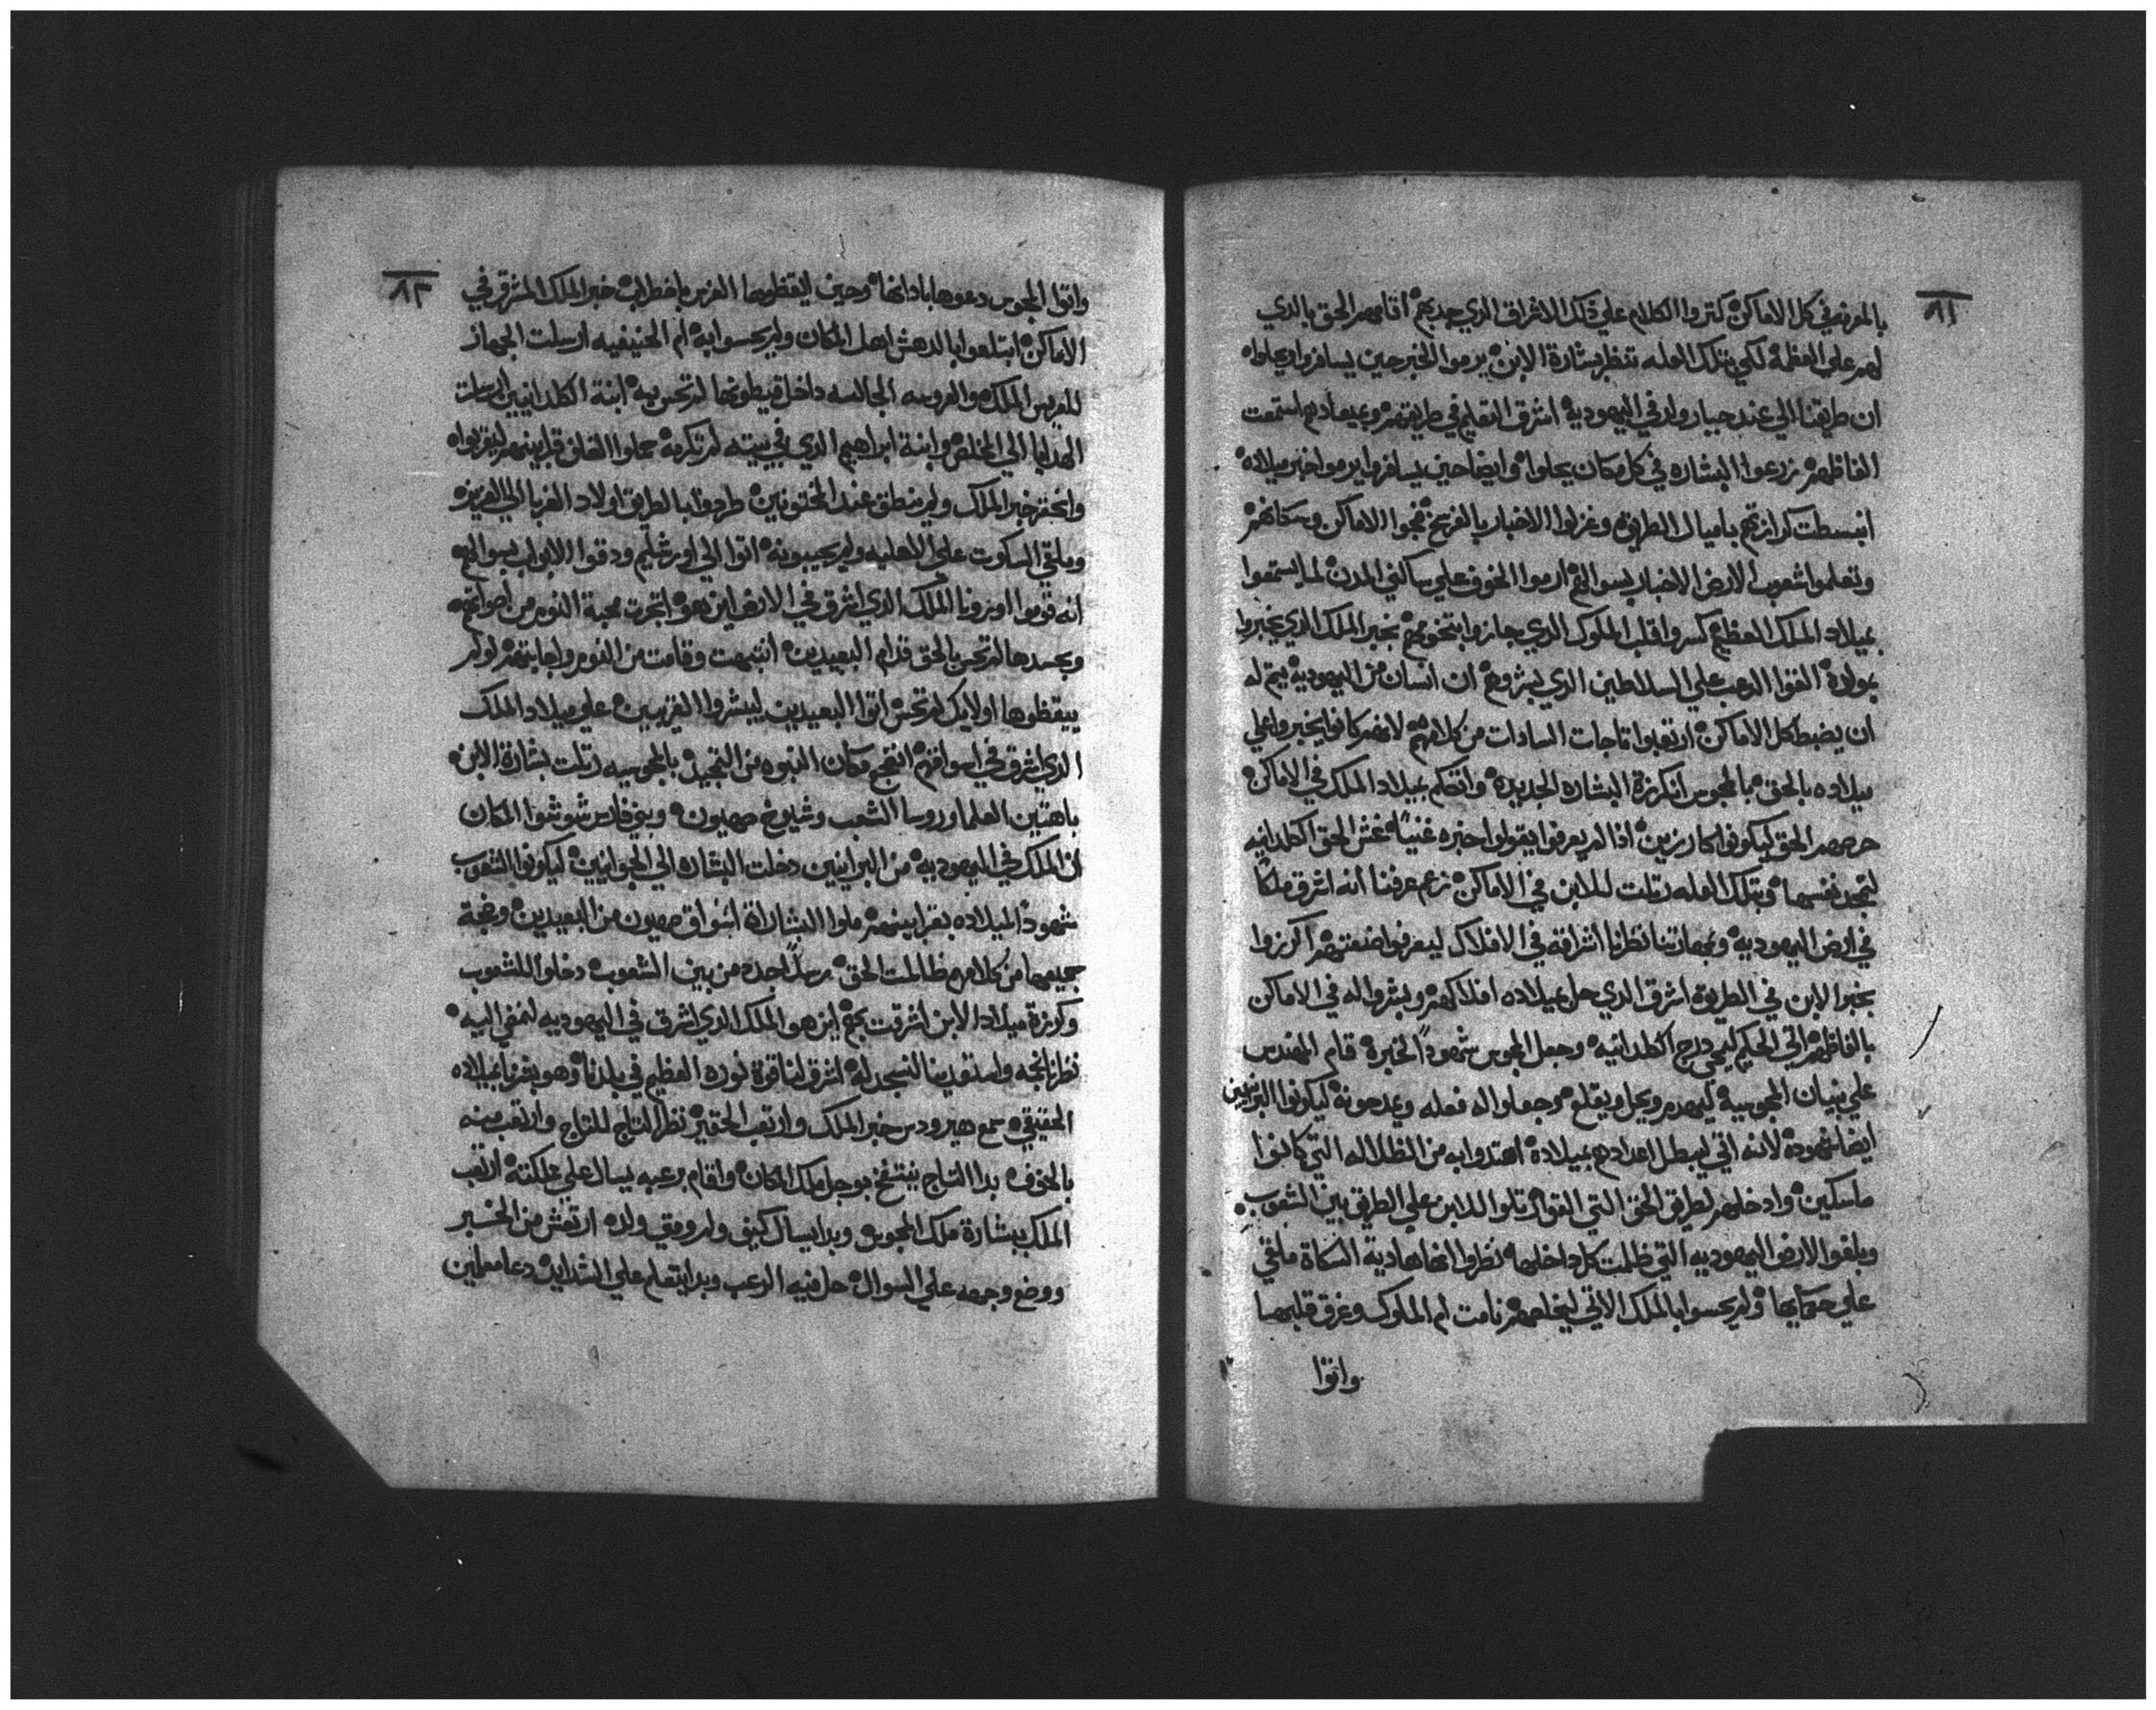 ٨١
بالمعرفه في كل الاماكن كتروا الكلام علي ذلك الاشراق الدي جدبهم اقامهم الحق بالدي
لهم علي العظمة لكي بتلك العله تنظر بشارة الابن يرموا الخبر حين يسافروا يحلوا
ان طريقنا الي عند جبار ولد في اليهودية اشرق التعليم في طريقهم وبميعادهم استمعت
الفاظهم زرعوا البشاره في كل مكان يحلوا وايضا حين يسافروا يرموا خبر ميلاده
انبسطت كرازتهم باميال الطريق وغزلوا الاخبار بالفرح فجوا الاماكن وسكانهم
وتعلموا شعوب الارض الاخبار بسوالهم ارموا الخوف علي ساكني المدن لما يستمعوا
بميلاد الملك العظيم كسروا قلب الملوك الدي جازوا بتخومهم بخبر الملك الدي يخبروا
بمولاده القوا الرعب علي السلاطين الدي بشروهم ان انسان من اليهودية يتم له
ان يضبط كل الاماكن ارتعبوا تاجات السادات من كلامهم لانهم كانوا يخبروا علي
ميلاده بالحق بالمجوس انكرزة البشاره الجديده واتكلم بميلاد الملك في الاماكن
حرصهم الحق ليكونوا كارزين اذا لم يعرفوا يقولوا خبره غنيًا غش الحق الكلدانيه
لتجد نفسها وبتلك العله رتلت للابن في الاماكن زعم عرفنا انه اشرق ملكًا
في ارض اليهودية وبمهارتنا نظرنا اشراقه في الافلاك ليعرفوا صنعتهم اكرزوا
بخبر الابن في الطريق اشرق الدي حل بميلاده افلاكهم وبشروا له في الاماكن
بالفاظهم اتي الحكيم ليحي درج الكلدانيه وجعل المجوس شهودًا لخبره قام المهندس
علي بنيان المجوسية ليهدم ويحل ويقلع وجعلوا له فعله ويمدحونه ليكونوا البرانيين
ايضا شهوده لانه اتي ليبطل اعدادهم بميلاده اهتدوا به من الظلاله التي كانوا
ماسكين وادخلهم لطريق الحق التي القوا رتلوا للابن علي الطريق بين الشعوب
وبلغوا الارض اليهوديه التي ظلمت كل داخلها نظروا انها هادية السكاة ملقي
علي حكايها ولم يحسوا بالملك الاتي ليخلصهم نامت ام الملوك وغرق قلبها
واتوا
٨٢
واتوا المجوس دعوها باداانها وحين ليقظوها الفرس باضطراب خبر الملك المشرق في
الاماكن ابتلعوا بالدهش اهل المكان ولم يحسوا به ام الحنيفيه ارسلت الجهاز
للعريس الملك والعروسه الجالسه داخل قيطونها لم تحس به ابنة الكلدانيين ارسلت
الهدايا الي المخلص وابنة ابراهيم الدي في بيته لم تكرمه حملوا القلف قرابينهم ليقربوا
واتحقر خبر الملك ولم منطق عند المختونين طردوا بالطريق اولاد الغربا الي العزيزه
وملقي السكوت علي الاهليه ولم يجيبونه اتوا الي اورشليم ودقوا الابواب بسوالهم
انه قوموا اورونا الملك الدي اشرق في الارض اين هو اتجرت محبة النوم من اصواتهم
وبحسدها لم تحس بالحق قدام البعيدين انتبهت وقامت من النوم واجابتهم لو لم
ييقظوها اولايك لم تحس اتوا البعيدين ليبشروا القريبين علي ميلاد الملك
الدي اشرق في اسواقهم انفتح مكان النبوه من التمجيد بالمجوسيه رتلت بشارة الابن
باهتين العلما وروسا الشعب وشيوخ صهيون وبني فارس شوشوا المكان
ان الملك في اليهوديه من البرانيين دخلت البشاره الي الجوانيين ليكونوا الشعوب
شهودًا لميلاده بقرابينهم ملوا البشارة اسواق صهيون من البعيدين وضجة
جميعها من كلامهم طالبت الحق مرسلًا جده من بين الشعوب دخلوا للشعوب
وكرزة ميلاد الابن اشرقت بهم اين هو الملك الدي اشرق في اليهوديه لنمضي اليه
نظرنا نجمه واستعدينا لنسجد له اشرق لنا قوة نوره العظيم في بلدنا وهو بشرنا بميلاده
الحقيقي سمع هيرودس خبر الملك وارتعب الحقير نظر التاج للتاج وارتعب منه
بالخوف بدا التاج ينتفخ بوجل ملك المكان واقام برعبه يسال علي مملكته ارتعب
الملك ببشارة ملك المجوس وبدا يسال كيف ولم وفي ولده ارتعش من الخبر
ووضع وجهه علي السوال حل فيه الرعب وبدا يتعلم علي الشدايد دعا معلمين